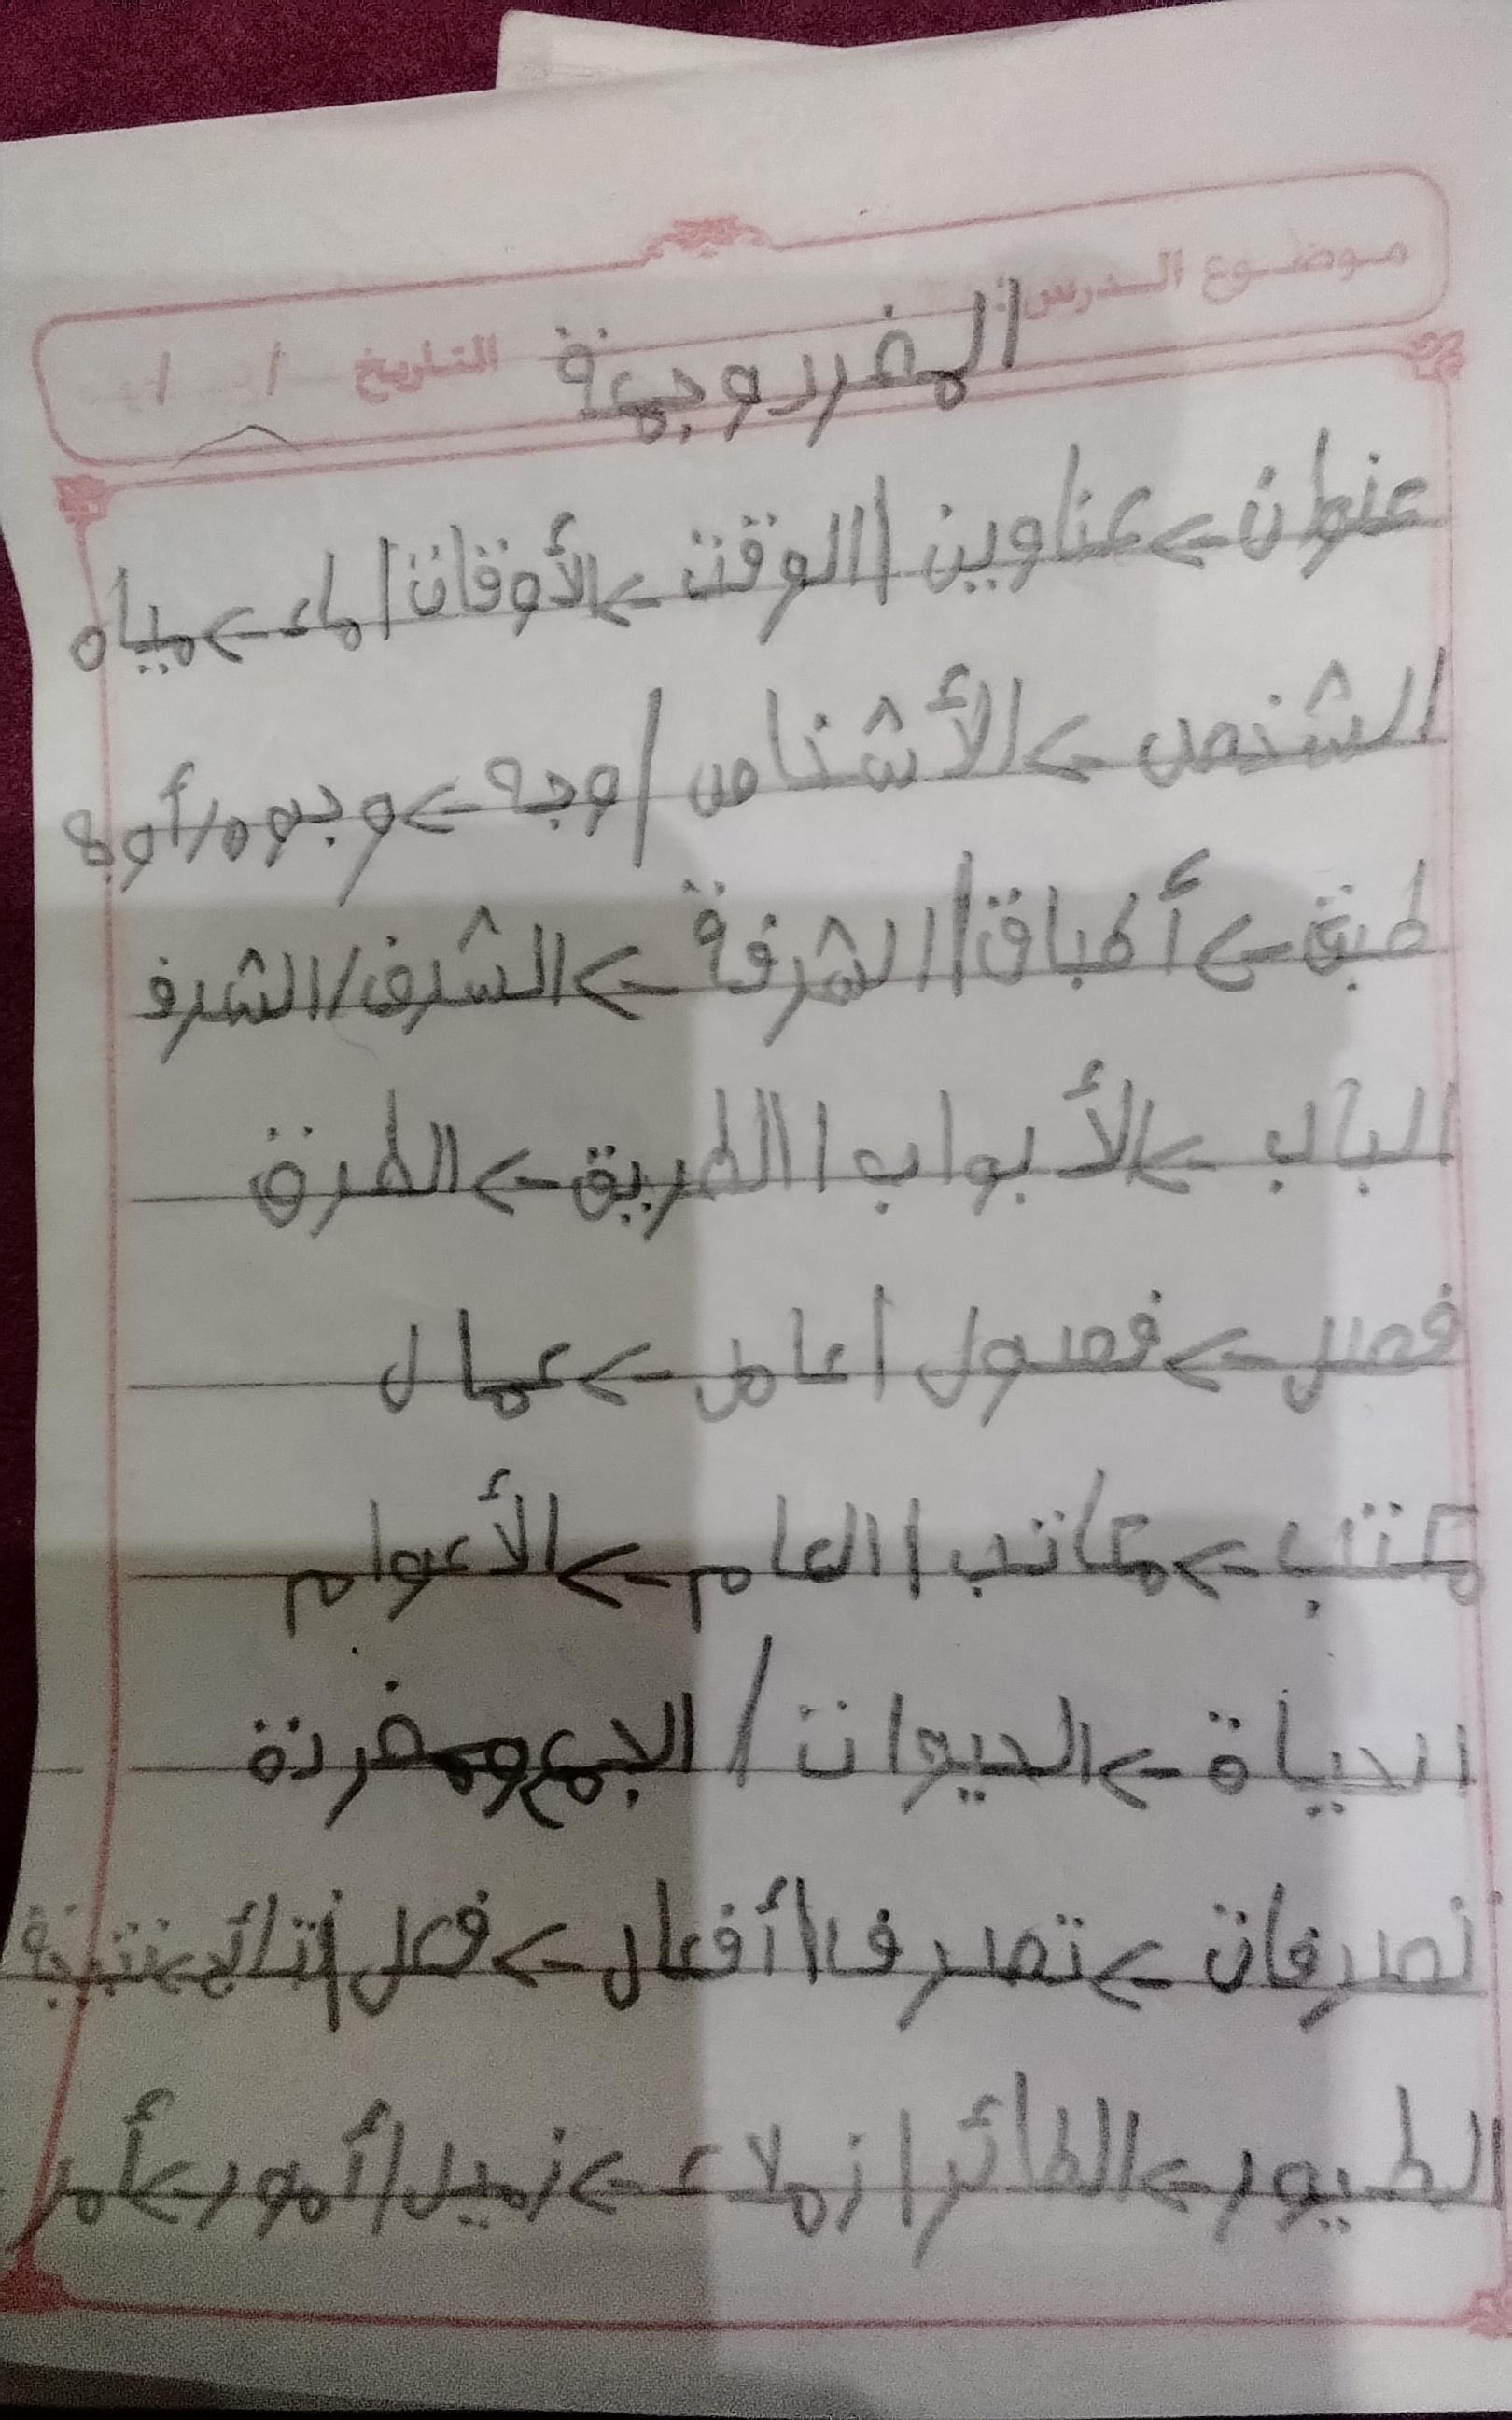 موضوع الدرس: التاريخ / /
المفرد وجمعة
عنوان -> عناوين / الوقت -> الأوقات / ماء -> مياه
الشخص -> الأشخاص / وجه -> وجوه / أوجه
طبق -> أطباق / الشرفة -> الشرف / الشرف
الباب -> الأبواب / الطريق -> الطرق
فصل -> فصول / عامل -> عمال
مكتب -> مكاتب / العام -> الأعوام
الحياة -> الحيوات / الجمع ومفردة
تصرفات -> تصرف / أفعال -> فعل / نتائج -> نتيجة
الطيور -> الطائر / زملاء -> زميل / أمور -> أمر